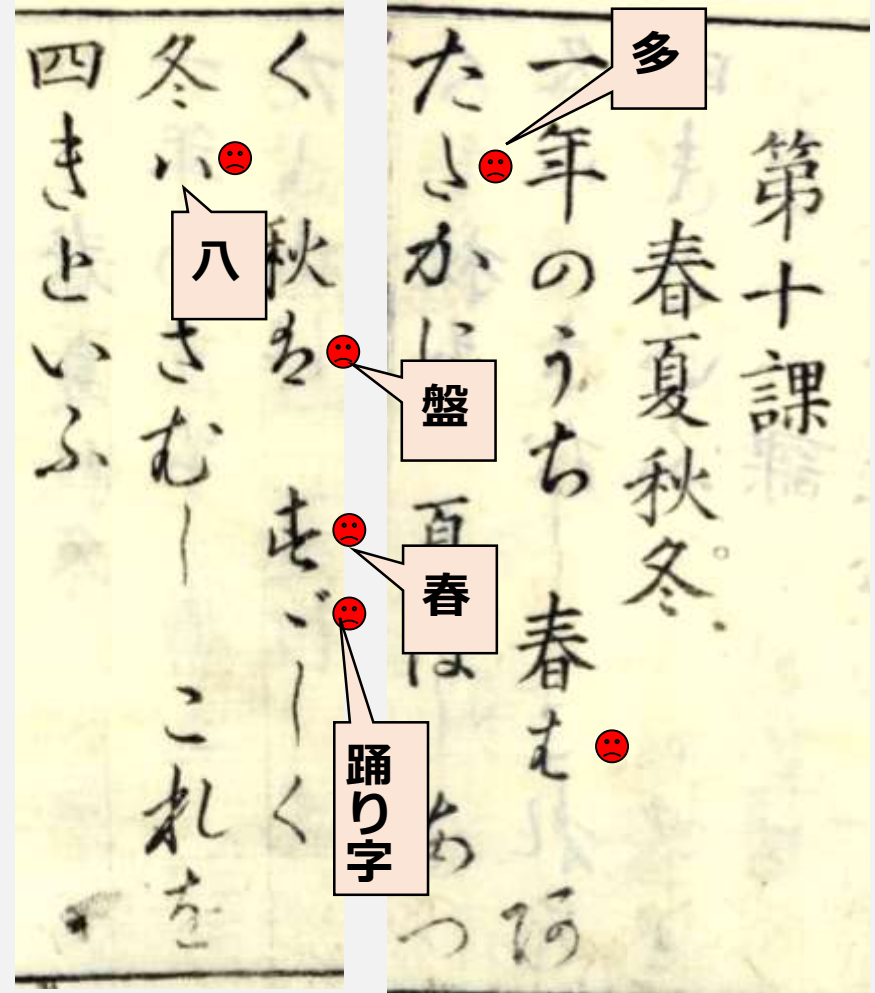 第十課
春夏秋冬
一年のうち 春は あ
たたかに 夏は あつ
く 秋は すゞしく
冬ハ さむし これを
四きといふ
多
盤
春
踊り字
八